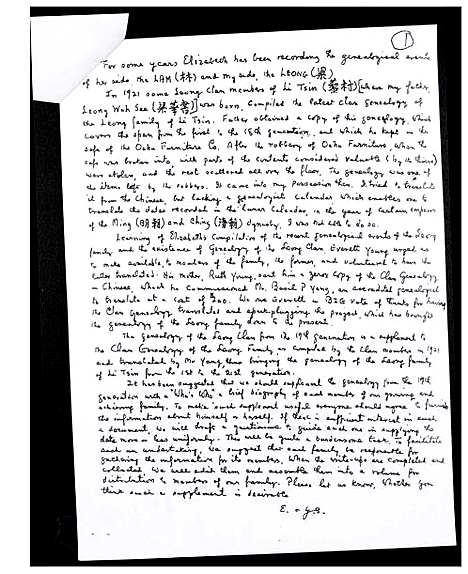 1
For some years Elizabeth has been recording the genealogical events
of her side the LAM (林) and my side, the LEONG (梁)
In 1921 some Leong clan members of Li Tsin [where my father,
Leong Wah See was born, compiled the latest Clan Genealogy of
the Leong family of Li Tsin. Father obtained a copy of his genealogy, which
covers the span from the first to the 18th generation, and which he kept in the
safe of the Oahu Furniture Co. After the robbery of Oahu Furniture, when the
safe was broken into, with parts of the contents considered valuable (by the thieves)
were stolen, and the rest scattered all over the floor. The genealogy was one of
the items left by the robbers. It came into my possession then. I tried to translate
it from the Chinese, but lacking a genealogists calendar which enables one to
translate the dates recorded in the Lunar Calendar, in the year of certain emperors
of the Ming (明朝) and Ching (清朝) dynasty, I was not able to do so.
Learning of Elizabeth's compilation of the recent genealogical events of the Leong
family and the existence of Genealogy of the Leong Clan Everett Young urged us
to make available, to members of the family, the former, and volunteered to have the
latter translated. His mother, Ruth Young, sent him a xerox copy of the Clan Genealogy
in Chinese, which he commissioned Mr. Basil P Yang, an accredited genealogist
to translate at a cost of We owe Everett a BIG vote of thanks for having
the Clan Genealogy translated and the project, which has brought
the genealogy of the Leong family down to the present.
The genealogy of the Leong Clan from the 19th generation is a supplement to
the Clan Genealogy of the Leong Family, as compiled by the Clan members in 1921
and translated by Mr Yang, thus bringing the genealogy of the Leong family
of Li Tsin from the 1st to the 21st generation.
It has been suggested that we should supplement the genealogy from the 19th
generation with a "Who's Who" a brief biography of each member of our growing and
achieving family. To make such supplement useful everyone should agree to furnish
the information about himself or herself. If there is sufficient interest in such
a document, we will draft a questionaire to guide each one in supplying the
data more or less uniformly. This will be quite a burdensome task. To facilitate
such an undertaking, we suggest that each family be responsible for
gathering the information for its members. When the write-ups are completed and
collected we will edit them and assemble them into a volume for
distribution to members of our family. Please let us know, whether you
think such a supplement is desirable
E. &